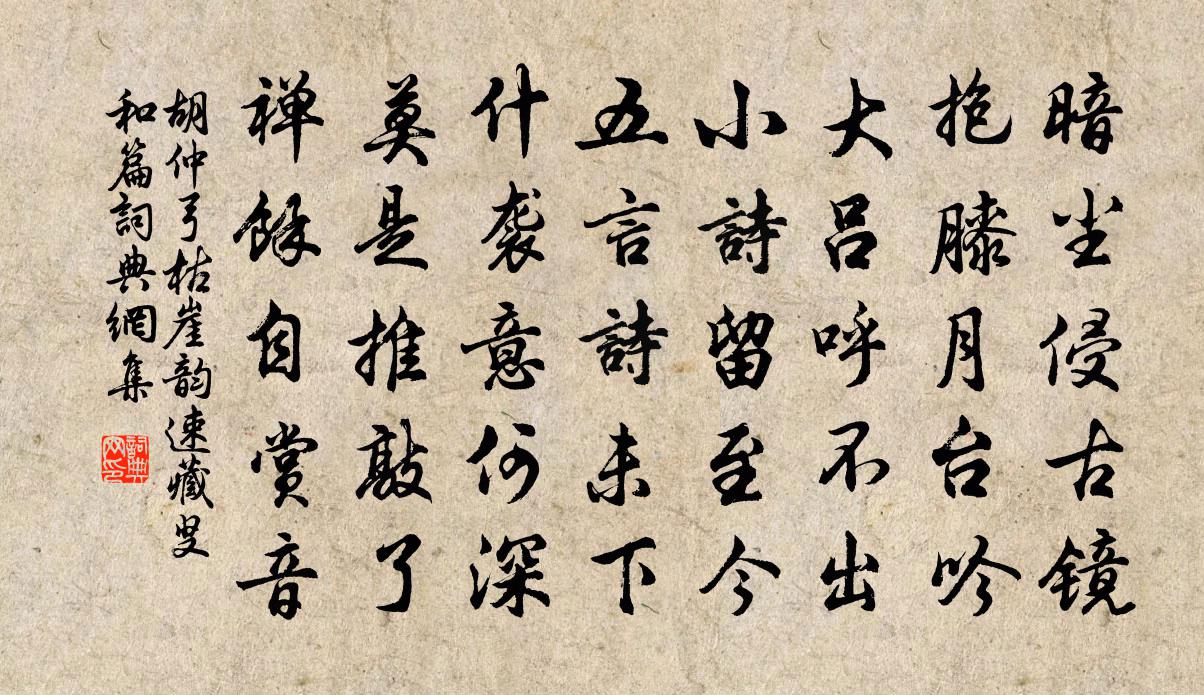 暗尘侵古镜
抱膝月台吟
大吕呼不出
小詩留至今
五言詩未下
什袭意何深
莫是推敲了
禅餘自赏音
胡仲弓枯崖韵速藏叟
和篇詞典網集
詞典網印